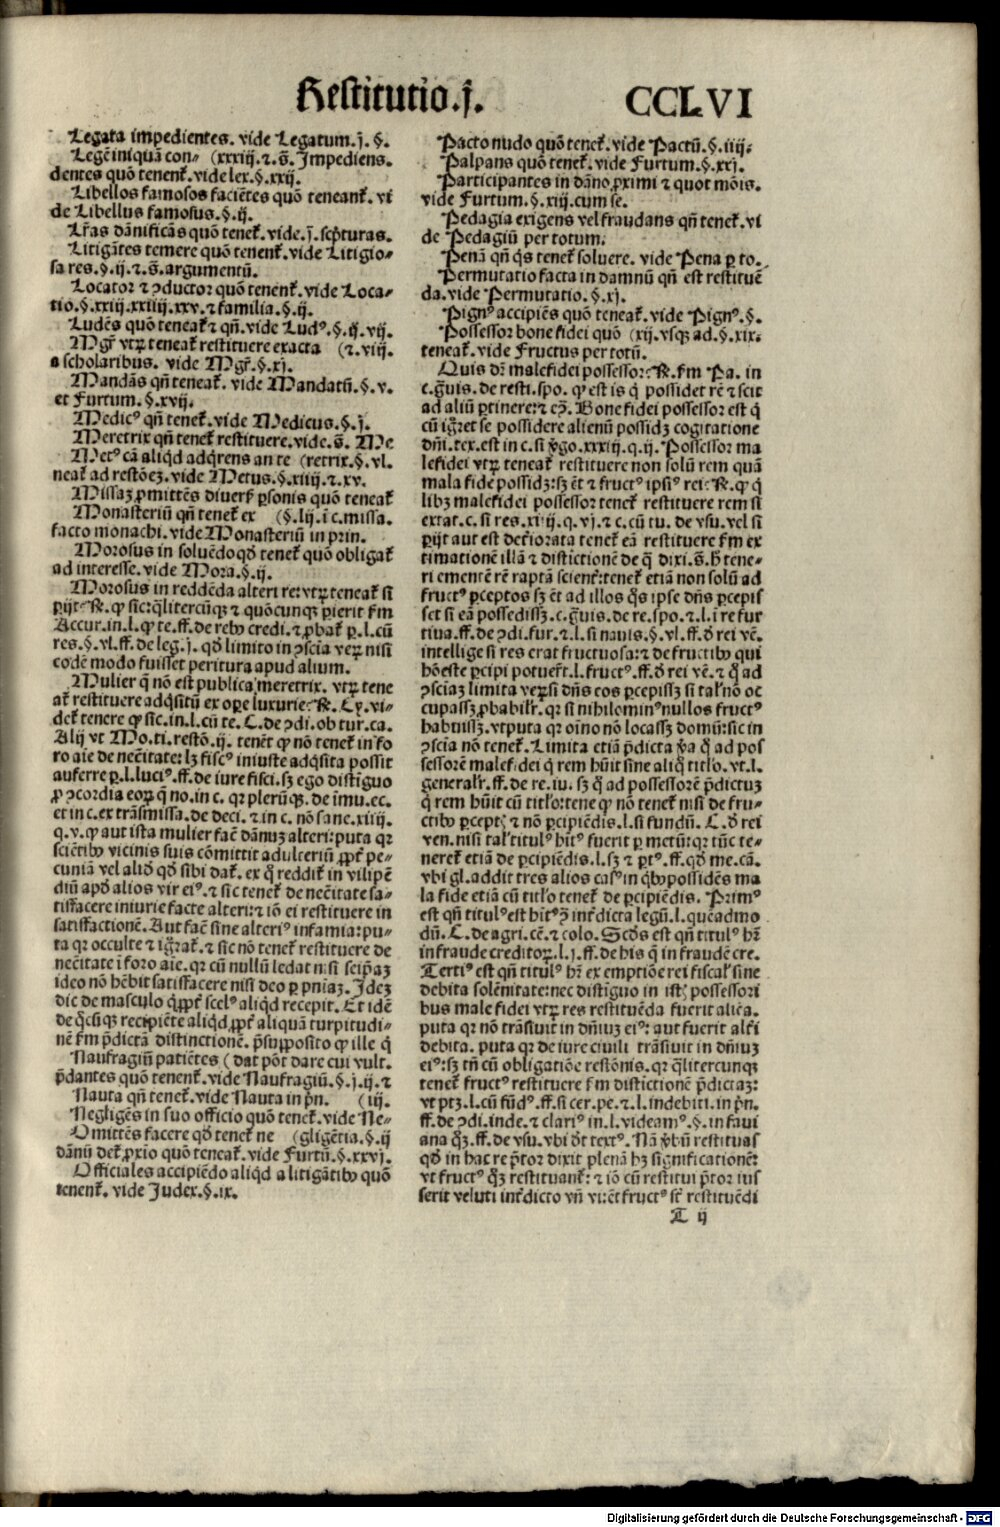 Restitutio.j.
CCLVI
Legata impedientes. vide Legatum.j.§.
Legē iniquā con⸗ (xxxiij.⁊.s̄. Impediens.
dentes quō tenenť. vide lex.§.xxij.
Libellos famosos faciētes quō teneanť. vi
de Libellus famosus.§.ij.
Lr̄as dānificās quō teneť. vide.j. scp̄turas.
Litigātes temere quō tenenť. vide Litigio⸗
sa res.§.ij.⁊.s̄. argumentū.
Locator ⁊ ↄductor quō tenenť. vide Loca⸗
tio.§.xxij.xxiiij.xxv.⁊ familia.§.ij.
Ludēs quō teneať ⁊ qn̄. vide Ludꝰ.§.ij.vij.
Mgr̄ vtꝝ teneať restituere exacta (⁊.viij.
a scholaribus. vide Mgr̄.§.xj.
Mandās qn̄ teneať. vide Mandatū.§.v.
et Furtum.§.xvij.
Medicꝰ qn̄ teneť. vide Medicus.§.j.
Meretrix qn̄ teneť restituere. vide.s̄. Me
Metꝰ cā aliqd adq̄rens an te (retrix.§.vl.
neať ad restōeꝫ. vide Metus.§.xiiij.⁊.xv.
Missaꝫ ꝓmittēs diuerſ ꝑsonis quō teneať
Monasteriū qn̄ teneť ex (§.lij. ī c. missa.
facto monachi. vide Monasteriū in prin.
Morosus in soluēdo qd̄ teneť quō obligať
ad interesse. vide Mora.§.ij.
Morosus in reddēda alteri re: vtꝝ teneať si
ꝑijt. ℞. ꝙ sic: qͥlitercūqꝫ ⁊ quōcunqꝫ ꝑierit ẜm
Accur. in.l. ꝙ te. ff. de rebꝰ credi. ⁊ ꝓbať ꝑ.l. cū
res.§.vl. ff. de leg.j. qd̄ limito in ↄscia veꝝ nisi
codē modo fuisset peritura apud alium.
Mulier q̄ nō est publica meretrix. vtꝝ tene
ať restituere adq̄sitū ex oꝑe luxurie: ℞. Cy. vi⸗
deť tenere ꝙ sic. in.l. cū te. C. de ↄdi. ob tur. ca.
Alij vt Mo. ti. restō.ij. tenēt ꝙ nō teneť in fo
ro aīe de necitate: lꝫ fiscꝰ iniuste adq̄sita possit
auferre ꝑ.l. luciꝰ. ff. de iure fisci. sꝫ ego distīguo
ꝓ ↄcordia eoꝝ q̄ no. in c. qr̄ pleruqꝫ. de īmu. ec.
et in c. ex trāsmissa. de deci. ⁊ in c. nō sane. xiiij.
q.v. ꝙ aut ista mulier facē dānuꝫ alteri: puta qr̄
sciētibꝰ vicinis suis cōmittit adulteriū ꝓpť pe⸗
cuniā vel aliđ qd̄ sibi dať. ex q̄ reddiť in vilipē
diū apđ alios vir eiꝰ. ⁊ sic teneť de necitate sa⸗
tisfacere iniurie facte alteri: ⁊ iō ei restituere in
satisfactionē. Aut facē sine alteriꝰ infamia: pu⸗
ta qr̄ occulte ⁊ igr̄ať. ⁊ sic nō teneť restituere de
necitate ī foro aīe. qr̄ cū nullū ledat nisi seip̄aꝫ
ideo nō hēbit satisfacere nisi deo ꝑ pn̄iaꝫ. Ideꝫ
dic de masculo q̄ ꝓpť scelꝰ aliqđ recepit. Et idē
de q̄cūqꝫ recipiēte aliqđ ꝓpť aliquā turpitudi⸗
nē ẜm p̄dictā distinctionē. p̄supposito ꝙ ille q̄
Naufragiū patiētes (dat pōt dare cui vult.
p̄dantes quō tenenť. vide Naufragiū.§.j.ij.⁊
Nauta qn̄ teneť. vide Nauta in pn̄. (iij.
Negligēs in suo officio quō teneť. vide Ne⸗
Omittēs facere qd̄ teneť ne (gligētia.§.ij
dānū deť ꝓxīo quō teneať. vide Furtū.§.xxvj.
Officiales accipiēdo aliqđ a litigātibꝰ quō
tenenť. vide Judex.§.ix.
Pacto nudo quō teneť. vide Pactū.§.iiij.
Palpans quō teneť. vide Furtum.§.xxj.
Participantes in dāno ꝓximi ⁊ quot mōis.
vide Furtum.§.xiij. cum se.
Pedagia exigens vel fraudans qn̄ teneť. vi
de Pedagiū per totum.
Penā qn̄ qͥs teneť soluere. vide Pena ꝑ to.
Permutatio facta in damnū qn̄ est restituē
da. vide Permutatio.§.xj.
Pignꝰ accipiēs quō teneať. vide Pignꝰ.§.
Possessor bone fidei quō (xij. vsqꝫ ad.§.xix.
teneať. vide Fructus per totū.
Quis dr̄ malefidei possessor: ℞. ẜm Pa. in
c. gͣuis. de resti. spo. ꝙ est is q̄ possidet rē ⁊ scit
ad aliū ꝑtinere: ⁊ cͦ. Bone fidei possessor est q̄
cū igr̄et se possidere alienū possidꝫ cogitatione
dn̄i. tex. est in c. si v̓go. xxxiiij. q.ij. Possessor ma
lefidei vtꝝ teneať restituere non solū rem quā
mala fide possidꝫ: sꝫ ēt ⁊ fructꝰ ipsiꝰ rei: ℞. ꝙ q̄
libꝫ malefidei possessor teneť restituere rem si
extat. c. si res. xiiij. q.vj. ⁊ c. cū tu. de vsu. vel si
ꝑijt aut est det̓iorata teneť eā restituere ẜm ex
timationē illā ⁊ distictionē de q̄ dixi.s̄. h̄ tene⸗
ri ementē rē raptā scienť: teneť etiā non solū ad
fructꝰ ꝑceptos sꝫ ēt ad illos q̄s ipse dn̄s ꝑcepis
set si eā possedissꝫ. c. gͣuis. de re. spo. ⁊.l. ī re fur
tiua. ff. de ↄdi. fur. ⁊.l. si nauis.§.vl. ff. đ rei vē.
intellige si res erat fructuosa: ⁊ de fructibꝰ qui
hōeste ꝑcipi potuer̄t.l. fructꝰ. ff. đ rei vē. ⁊ q̄ ad
ↄsciaꝫ limita veꝝ si dn̄s eos ꝑcepissꝫ si tal̓ nō oc
cupassꝫ ꝓbabilr̄. qr̄ si nihilominꝰ nullos fructꝰ
habuissꝫ. vt puta qr̄ oīno nō locassꝫ domū: sic in
ↄscia nō teneť. Limita etiā p̄dicta v̓a q̄ ad pos
sessorē malefidei q̄ rem hūit sine aliq̄ titlo. vt.l.
generalr̄. ff. de re. iu. sꝫ q̄ ad possessorē p̄dictuꝫ
q̄ rem hūit cū titlo: tene ꝙ nō teneť nisi de fru⸗
ctibꝰ ꝑceptꝭ ⁊ nō ꝑcipiēdis.l. si fundū. C. đ rei
ven. nisi tal̓ titulꝰ hitꝰ fuerit ꝑ metū: qr̄ tūc te⸗
nereť etiā de ꝑcipiēdis.l. sꝫ ⁊ ꝑtꝰ. ff. qd̄ me. cā.
vbi gl. addit tres alios casꝰ in q̄bꝰ possidēs ma
la fide etiā cū titlo teneť de ꝑcipiēdis. Primꝰ
est qn̄ titulꝰ est hitꝰ ↄ̄ inťdicta legū.l. quēadmo
dū. C. de agri. cē. ⁊ colo. Scđs est qn̄ titulꝰ hr̄
in fraude creditoꝝ.l.j. ff. de his q̄ in fraudē cre.
Tertiꝰ est qn̄ titulꝰ hr̄ ex emptiōe rei fiscal̓ sine
debita solēnitate: nec distīguo in istꝭ possessori
bus male fidei vtꝝ res restituēda fuerit aliēa.
puta qr̄ nō trāsiuit in dn̄iuꝫ eiꝰ: aut fuerit alťi
debita. puta qr̄ de iure ciuili trāsiuit in dn̄iuꝫ
eiꝰ: sꝫ tn̄ cū obligatiōe restōnis. qr̄ qͥlitercunqꝫ
teneť fructꝰ restituere ẜm distictionē p̄dictaꝫ:
vt ptꝫ.l. cū fūdꝰ. ff. si cer. pe. ⁊.l. indebiti. in pn̄.
ff. de ↄdi. inde. ⁊ clariꝰ in.l. videamꝰ.§. in faui
ana q̄ꝫ. ff. de vsu. vbi đt textꝰ. Nā v̓bū restituas
qd̄ in hac re p̄tor dixit plenā hꝫ significationē:
vt fructꝰ q̄ꝫ restituanť: ⁊ iō cū restitui p̄tor ius
serit veluti inťdicto vn̄ vi: ēt fructꝰ sť restituēdi
T ij
Digitalisierung gefördert durch die Deutsche Forschungsgemeinschaft - DFG